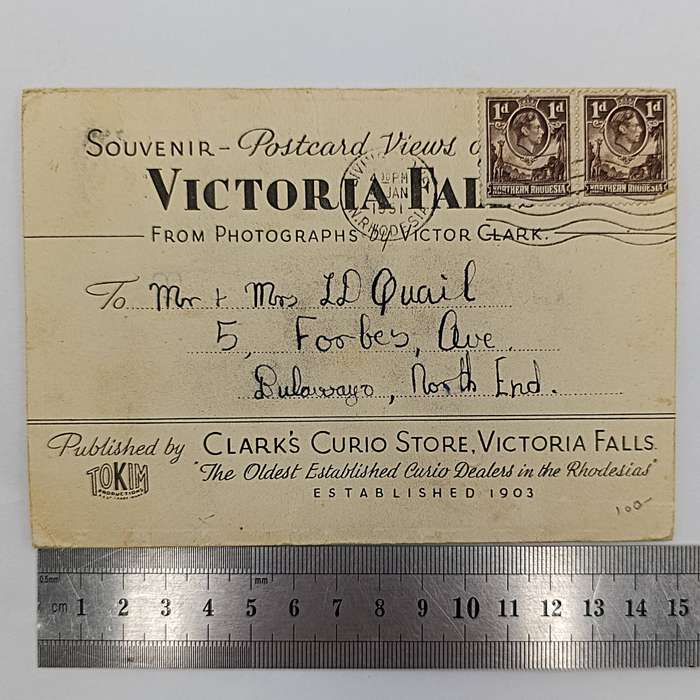 SOUVENIR - Postcard Views
VICTORIA FAL
FROM PHOTOGRAPHS by VICTOR CLARK.
1d 1d
NORTHERN RHODESIA
1d 1d
NORTHERN RHODESIA
PM
JAN
1951
N.RHODESIA
To Mr & Mrs L D Quail
5, Forbes, Ave.
Bulawayo, North End.
Published by CLARK'S CURIO STORE, VICTORIA FALLS.
TOKIM
PRODUCTIONS
"The Oldest Established Curio Dealers in the Rhodesias"
ESTABLISHED 1903
100-
0.5mm
mm
cm 1 2 3 4 5 6 7 8 9 10 11 12 13 14 15